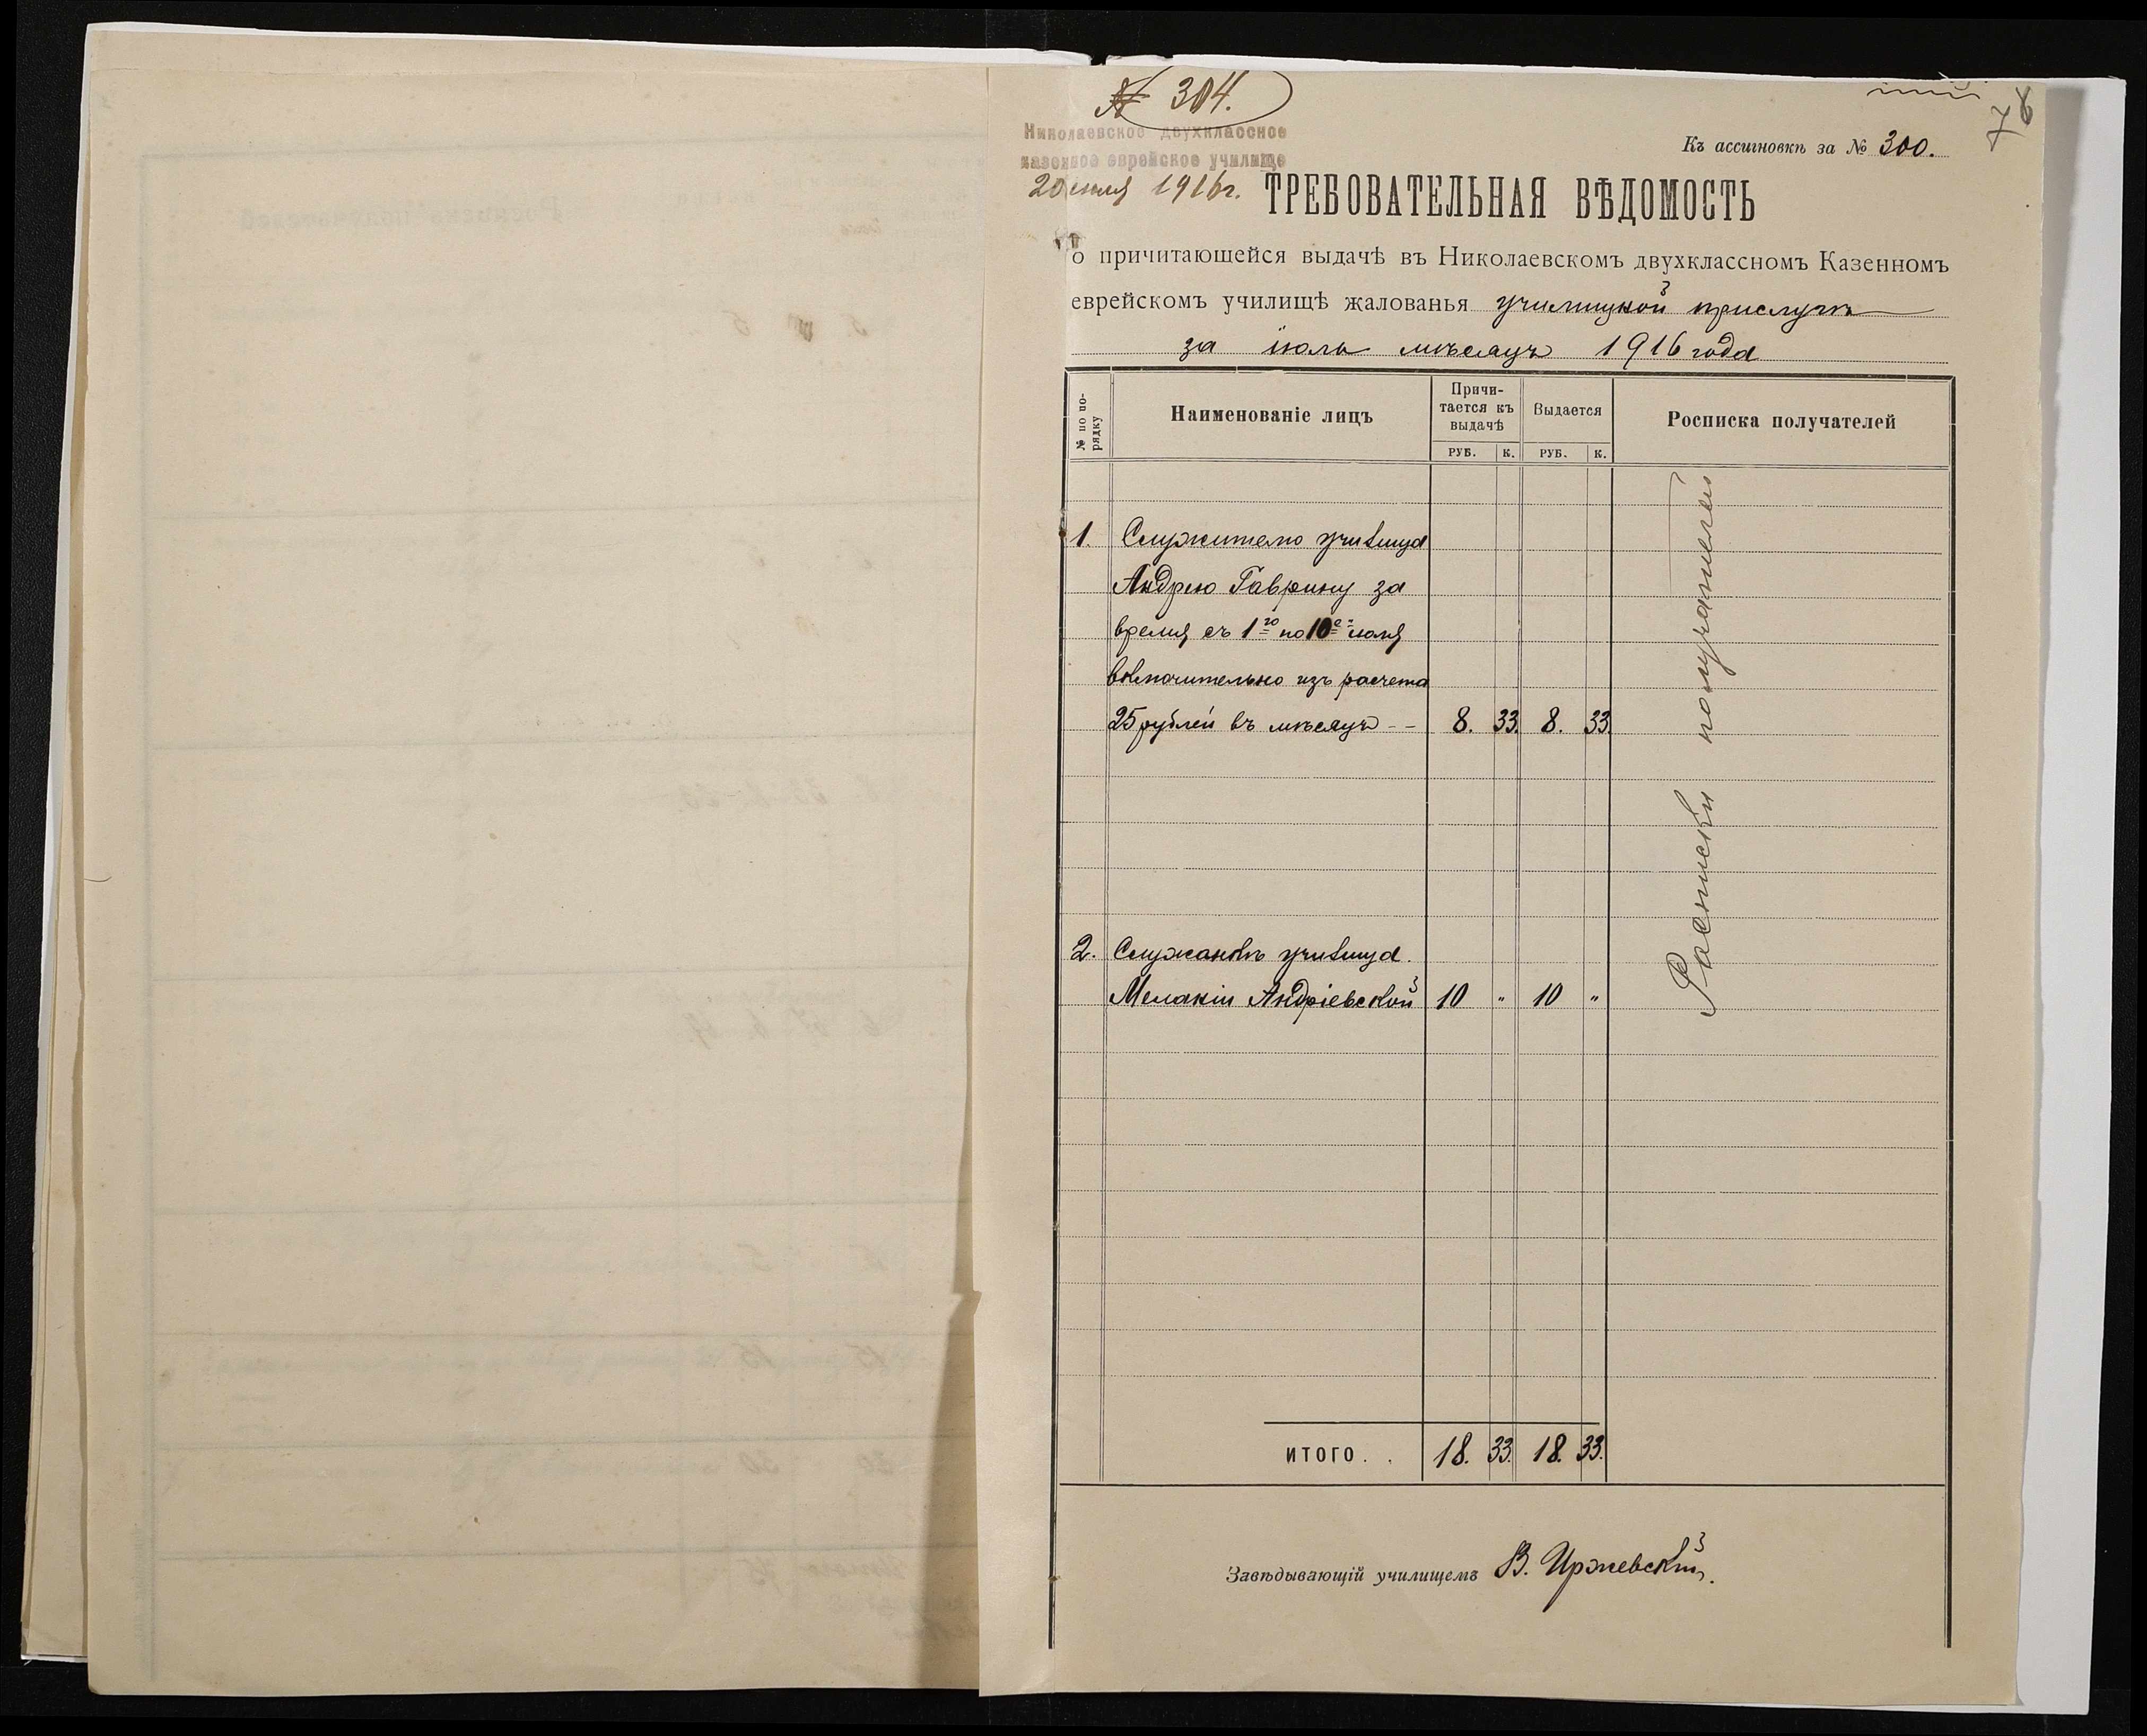 № 304.
Николаевское двухклассное
казенное еврейское училище
20 июля 1916 г.
78
Къ ассигновкѣ за № 300.
ТРЕБОВАТЕЛЬНАЯ ВѢДОМОСТЬ
о причитающейся выдачѣ въ Николаевскомъ двухклассномъ Казенномъ
еврейскомъ училищѣ жалованья училищной прислугѣ
за іюль мѣсяцъ 1916 года
№ по по-
рядку
Наименованіе лицъ
Причи-
тается къ
выдачѣ
Выдается
Росписка получателей
РУБ. К. РУБ. К.
1. Служителю училища
Андрею Гаврину за
время съ 1го по 10е іюля
включительно изъ расчета
25 рублей въ мѣсяцъ -- 8. 33. 8. 33.
2. Служанкѣ училища.
Меланіи Андріевской 10 " 10 "
Расписки получателей
ИТОГО . . 18. 33. 18. 33.
Завѣдывающій училищемъ В. Иржевскій.